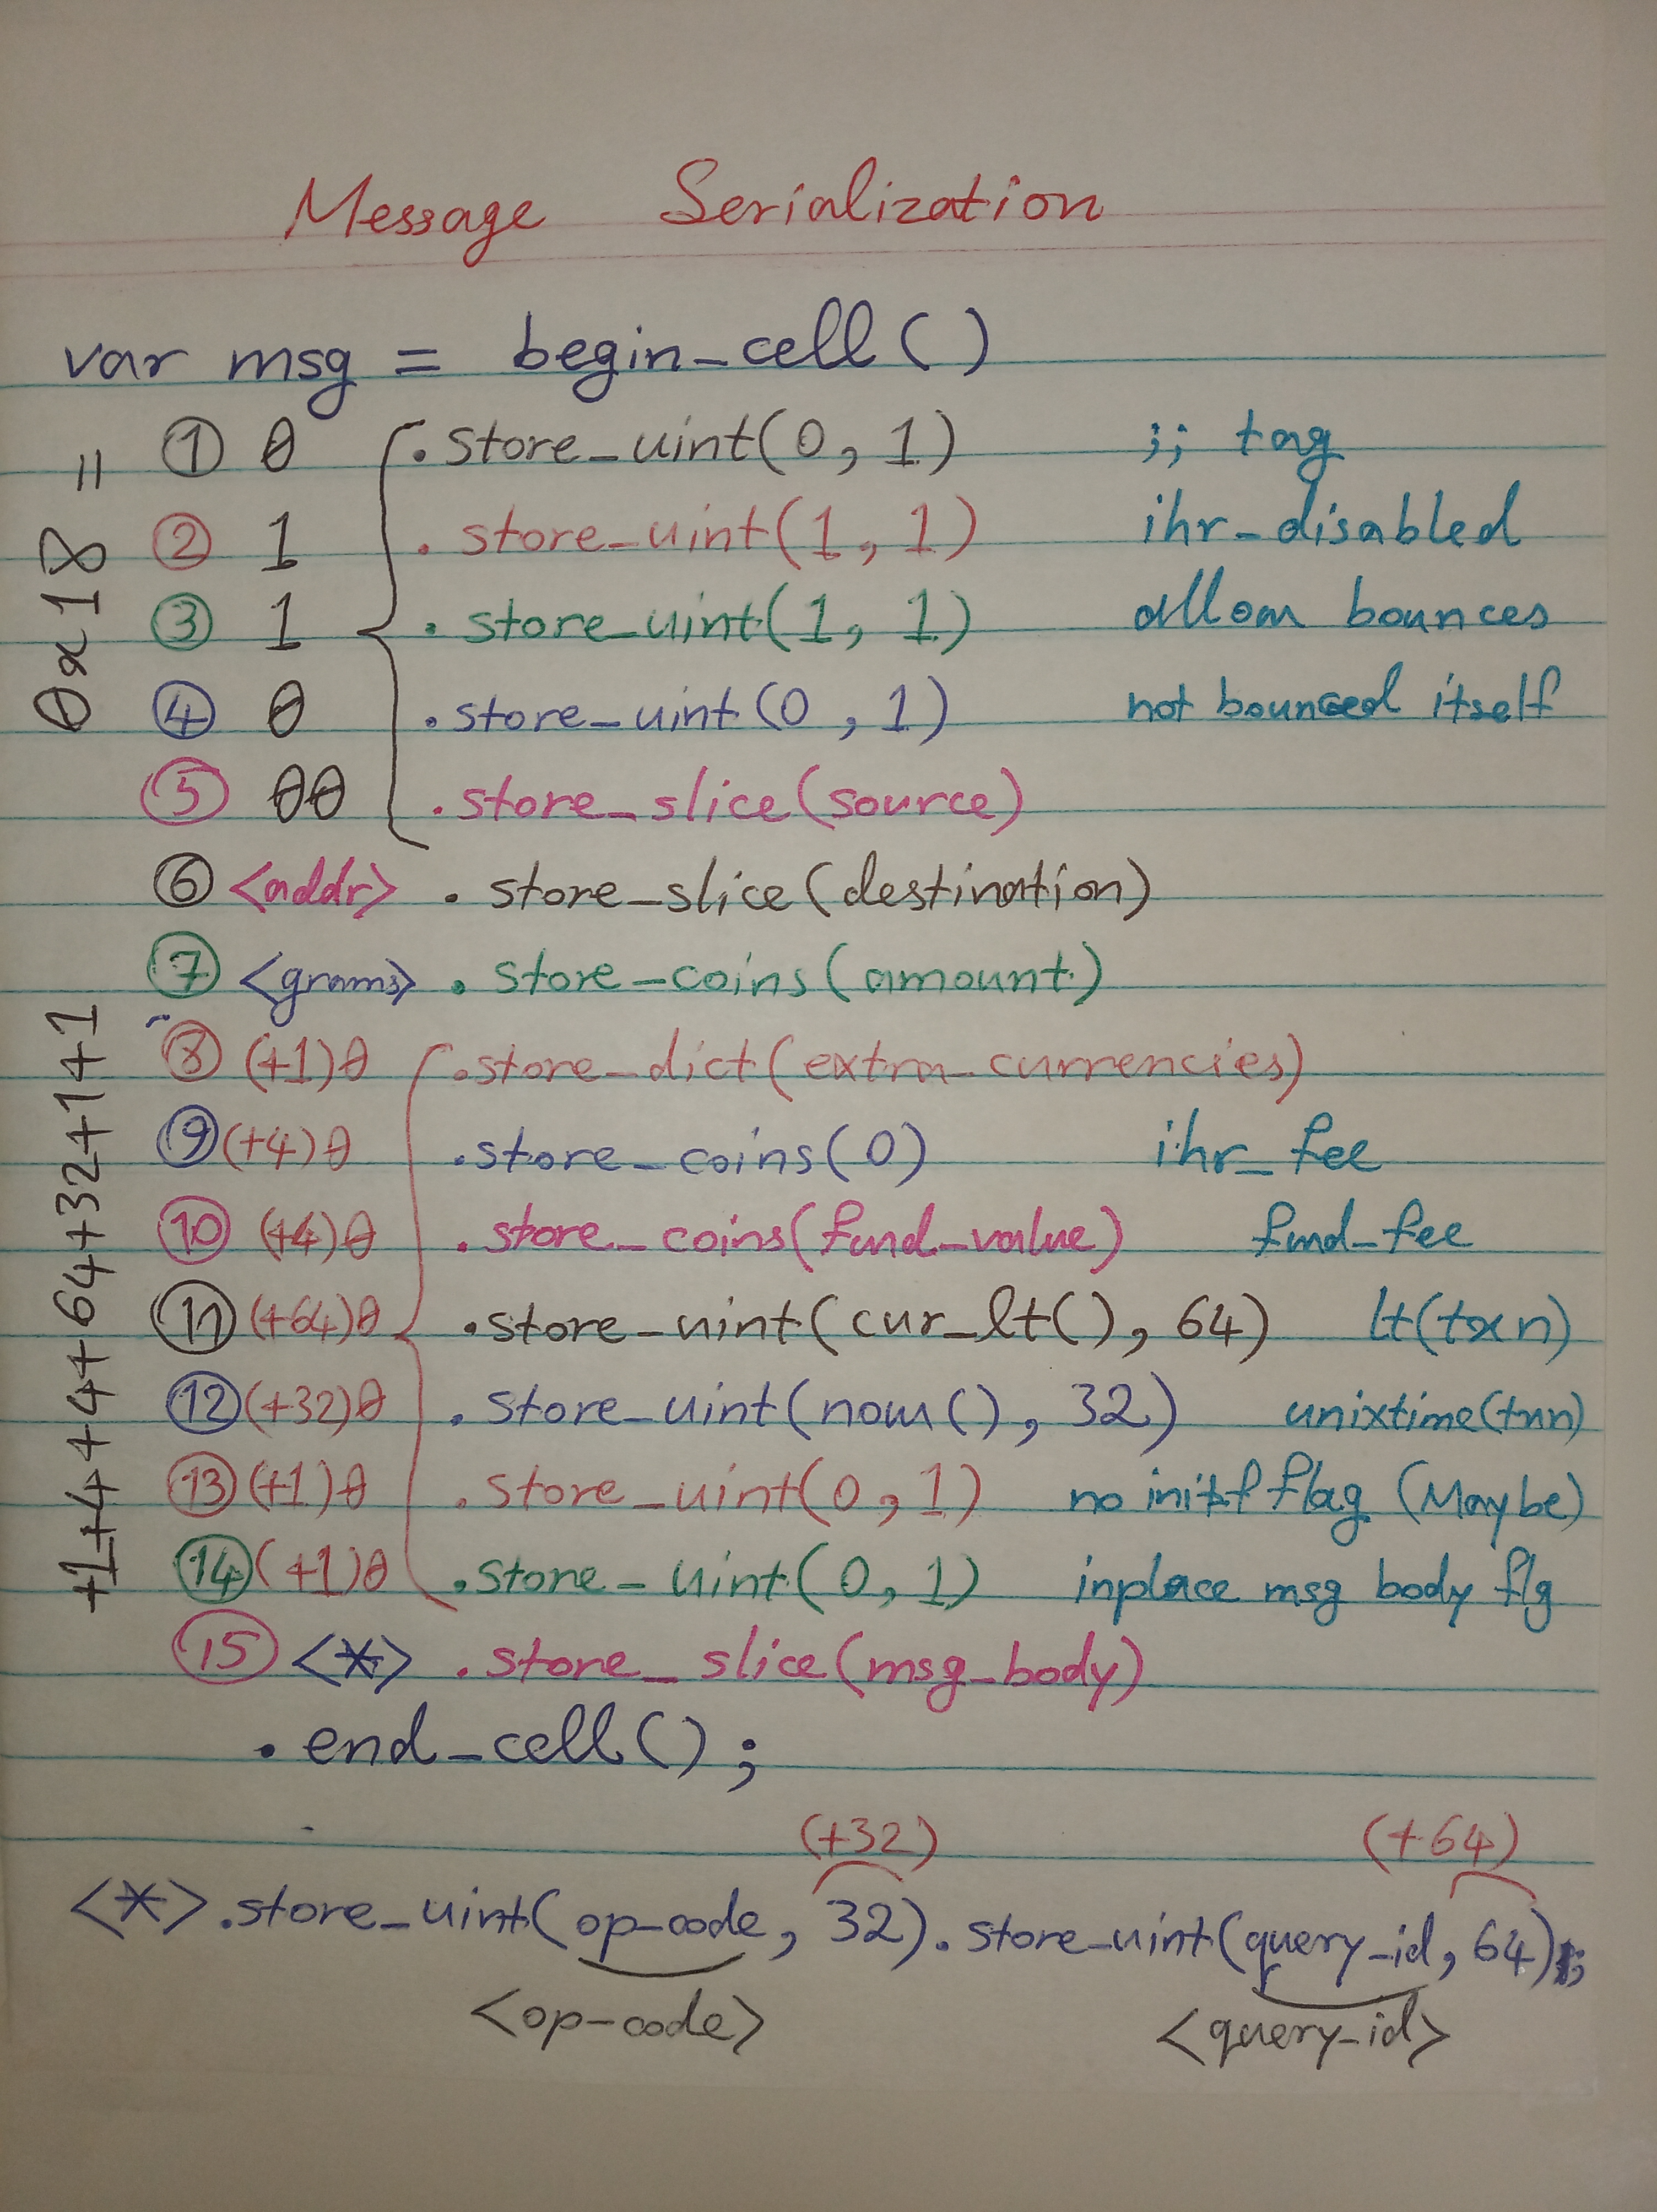 Message Serialization
var msg = begin_cell()
① 0 .store_uint(0, 1) ;; tag
② 1 .store_uint(1, 1) ihr_disabled
③ 1 .store_uint(1, 1) allow bounces
④ 0 .store_uint(0, 1) not bounced itself
⑤ 00 .store_slice(source)
0x18 =
⑥ <addr> .store_slice(destination)
⑦ <grams> .store_coins(amount)
⑧ (+1)0 .store_dict(extra_currencies)
⑨ (+4)0 .store_coins(0) ihr_fee
⑩ (+4)0 .store_coins(fwd_value) fwd_fee
⑪ (+64)0 .store_uint(cur_lt(), 64) lt(txn)
⑫ (+32)0 .store_uint(now(), 32) unixtime(txn)
⑬ (+1)0 .store_uint(0, 1) no init flag (Maybe)
⑭ (+1)0 .store_uint(0, 1) inplace msg body flg
+1+4+4+64+32+1+1
⑮ <*> .store_slice(msg_body)
.end_cell();
(+32) (+64)
<*>.store_uint(op-code, 32).store_uint(query_id, 64);
<op-code> <query_id>